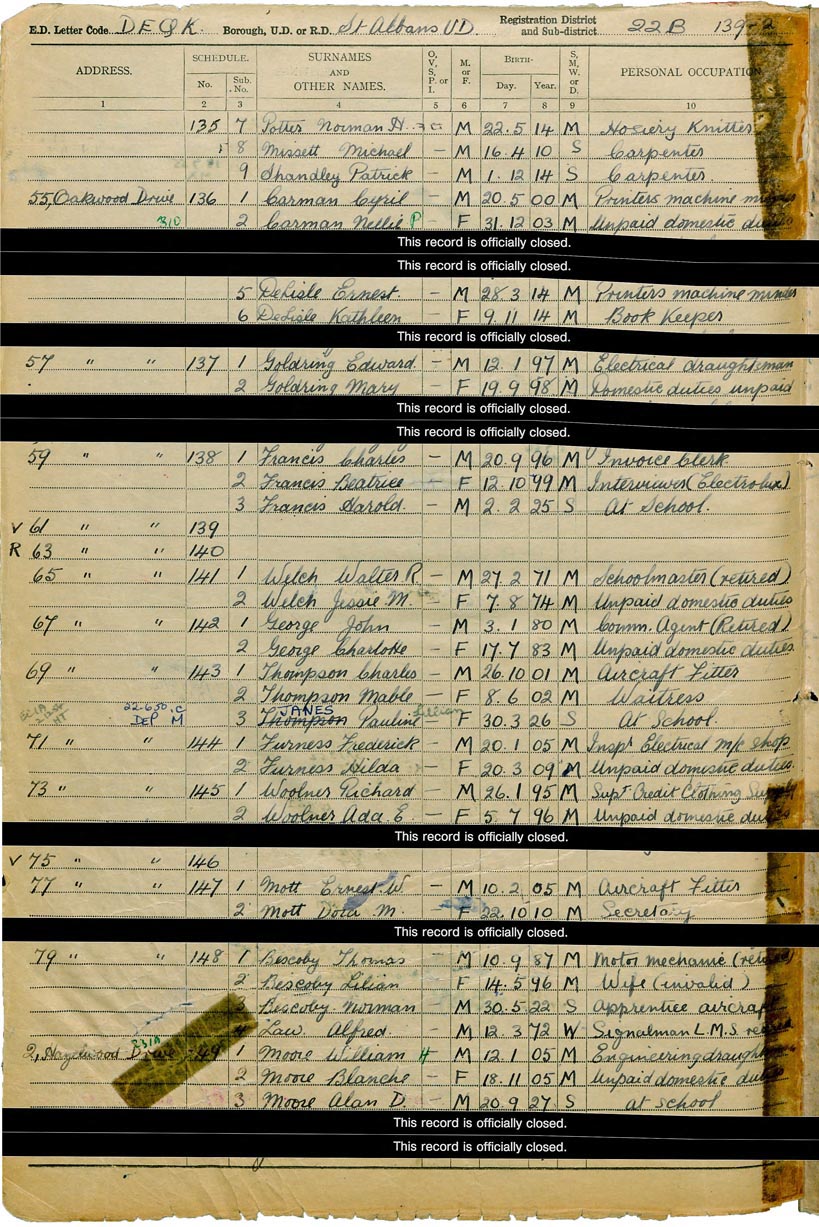 E.D. Letter Code DEQK. Borough, U.D. or R.D. St Albans UD. Registration District and Sub-district 22B 139-2
ADDRESS. SCHEDULE. No. Sub. No. SURNAMES AND OTHER NAMES. O, V, S, P, or I. M. or F. BIRTH- Day. Year. S, M, W, or D. PERSONAL OCCUPATION
1 2 3 4 5 6 7 8 9 10
135 7 Potter Norman H. M 22.5 14 M Hosiery Knitter
8 Missett Michael - M 16.4 10 S Carpenter
9 Shandley Patrick - M 1.12 14 S Carpenter
55, Oakwood Drive 136 1 Carman Cyril - M 20.5 00 M Printers machine
2 Carman Nellie P - F 31.12 03 M Unpaid domestic duties
This record is officially closed.
This record is officially closed.
5 DeLisle Ernest. - M 28.3 14 M Printers machine minder
6 DeLisle Kathleen - F 9.11 14 M Book Keeper
This record is officially closed.
57 " " 137 1 Goldring Edward. - M 12.1 97 M Electrical draughtsman
2 Goldring Mary - F 19.9 98 M Domestic duties unpaid
This record is officially closed.
This record is officially closed.
59 " " 138 1 Francis Charles - M 20.9 96 M Invoice Clerk
2 Francis Beatrice - F 12.10 99 M Interviewer (Electrolux)
3 Francis Harold. - M 2.2 25 S At School.
V 61 " " 139
R 63 " " 140
65 " " 141 1 Welch Walter R - M 27.2 71 M Schoolmaster (retired)
2 Welch Jessie M. - F 7.8 74 M Unpaid domestic duties
67 " " 142 1 George John - M 3.1 80 M Comm. Agent (Retired)
2 George Charlotte - F 17.7 83 M Unpaid domestic duties.
69 " " 143 1 Thompson Charles - M 26.10 01 M Aircraft Fitter
2 Thompson Mable - F 8.6 02 M Waitress
22.6.50. C DEP M 3 Thompson JANES Pauline Lillian F 30.3 26 S At School.
71 " " 144 1 Furness Frederick - M 20.1 05 M Inspr Electrical m/c shop
2 Furness Hilda - F 20.3 09 M Unpaid domestic duties.
73 " " 145 1 Woolner Richard - M 26.1 95 M Supt Credit Clothing
2 Woolner Ada E. - F 5.7 96 M Unpaid domestic duties
This record is officially closed.
V 75 " " 146
77 " " 147 1 Mott Ernest W. - M 10.2 05 M Aircraft Fitter
2 Mott Dora M. - F 22.10 10 M Secretary
This record is officially closed.
79 " " 148 1 Bescoby Thomas - M 10.9 87 M Motor mechanic (retired)
2 Bescoby Lilian - F 14.5 96 M Wife (invalid)
3 Bescoby Norman - M 30.5 22 S Apprentice aircraft
4 Law Alfred. - M 12.3 72 W Signalman L.M.S. retired
2, Hazelwood Drive 149 1 Moore William H - M 12.1 05 M Engineering
2 Moore Blanche - F 18.11 05 M Unpaid domestic duties
3 Moore Alan D. - M 20.9 27 S at school
This record is officially closed.
This record is officially closed.